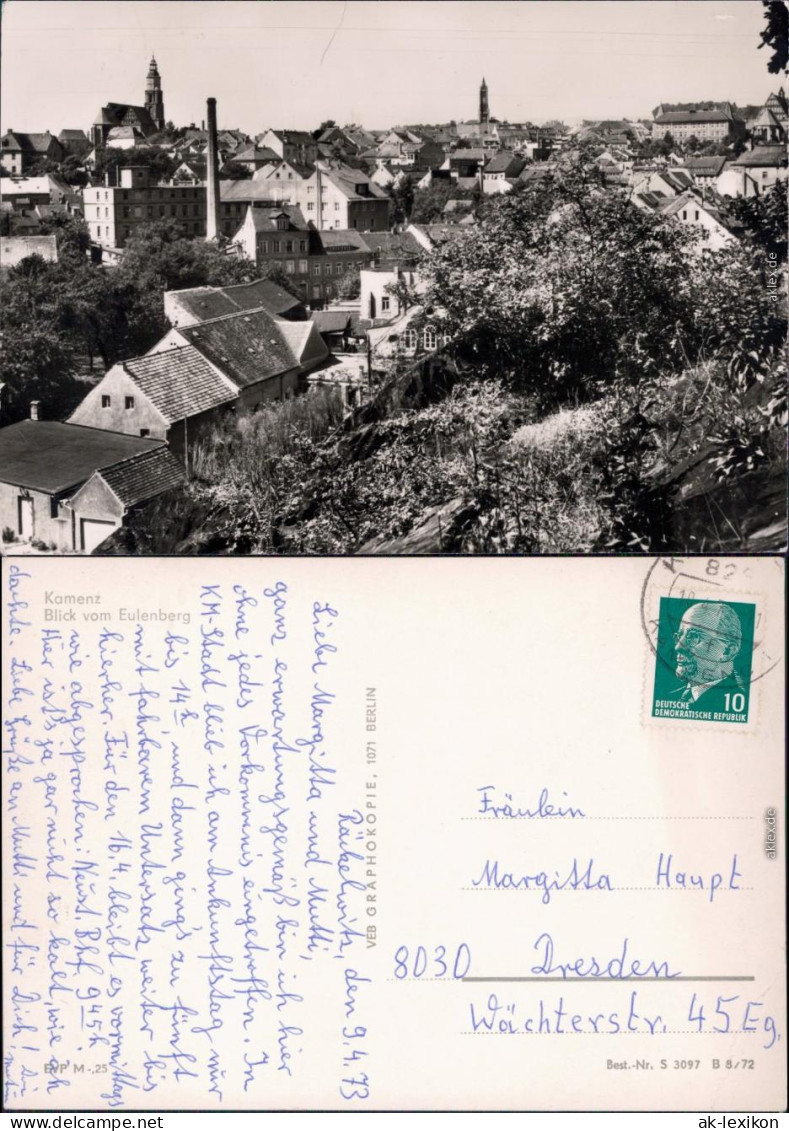 Kamenz
Blick vom Eulenberg
Räckelwitz, den 9.4.73
Liebe Margitta und Mutti,
ganz erwartungsgemäß bin ich hier
ohne jedes Vorkommnis eingetroffen. In
KM-Stadt blieb ich am Ankunftstag nur
bis 14 und dann ging's zu fünft
mit fahrbarem Untersatz weiter bis
hierher. Für den 16.4. bleibt es vormittags
wie abgesprochen: Neust. Bhf 9 45 h.
Hier ist's ja gar nicht so kalt, wie ich
dachte. Liebe Grüße an Mutti und für Dich!
VEB GRAPHOKOPIE, 1071 BERLIN
EVP M -,25
82
10
DEUTSCHE
DEMOKRATISCHE REPUBLIK
Fräulein
Margitta Haupt
8030 Dresden
Wächterstr. 45 Eg.
Best.-Nr. S 3097 B 8/72
aklex.de
aklex.de
ak-lexikon
www.delcampe.net
ak-lexikon